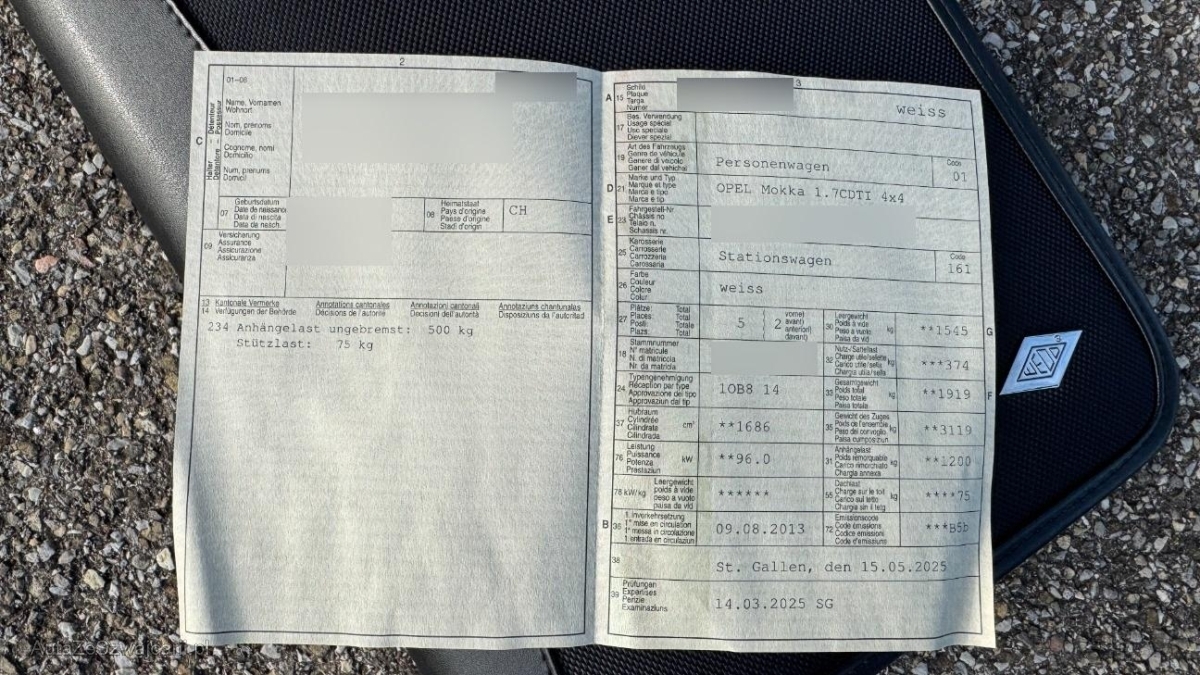 2
01–06
Name, Vornamen
Wohnort
Nom, prénoms
Domicile
Cognome, nomi
Domicilio
Num, prenums
Domicil
C
Halter
Détenteur
Detentore
Possessur
07
Geburtsdatum
Date de naissance
Data di nascita
Data da nasch.
08
Heimatstaat
Pays d'origine
Paese d'origine
Stadi d'origin
CH
09
Versicherung
Assurance
Assicurazione
Assicuranza
13
14
Kantonale Vermerke
Verfügungen der Behörde
Annotations cantonales
Décisions de l'autorité
Annotazioni cantonali
Decisioni dell'autorità
Annotaziuns chantunalas
Disposiziuns da l'autoritad
234 Anhängelast ungebremst: 500 kg
Stützlast: 75 kg
3
A
15
Schild
Plaque
Targa
Numer
weiss
17
Bes. Verwendung
Usage spécial
Uso speciale
Diever spezial
19
Art des Fahrzeugs
Genre de véhicule
Genere di veicolo
Gener dal vehichel
Personenwagen
Code
01
D
21
Marke und Typ
Marque et type
Marca e tipo
Marca e tip
OPEL Mokka 1.7CDTI 4x4
E
23
Fahrgestell-Nr.
Châssis no
Telaio n.
Schassis nr.
25
Karosserie
Carrosserie
Carrozzeria
Carossaria
Stationswagen
Code
161
26
Farbe
Couleur
Colore
Colur
weiss
27
Plätze: Total
Places: Total
Posti: Totale
Plazs: Total
5
2
vorne)
avant)
anteriori)
davant)
30
Leergewicht
Poids à vide
Peso a vuoto
Paisa da vid
kg
**1545
G
18
Stammnummer
N° matricule
N. di matricola
Nr. da matricla
32
Nutz-/Sattellast
Charge utile/sellette
Carico utile/sella
Chargia utila/sella
kg
***374
24
Typengenehmigung
Réception par type
Approvazione del tipo
Approvaziun dal tip
1OB8 14
33
Gesamtgewicht
Poids total
Peso totale
Paisa totala
kg
**1919
F
37
Hubraum
Cylindrée
Cilindrata
Cilindrada
cm³
**1686
35
Gewicht des Zuges
Poids de l'ensemble
Peso del convoglio
Paisa cumposiziun
kg
**3119
76
Leistung
Puissance
Potenza
Prestaziun
kW
**96.0
31
Anhängelast
Poids remorquable
Carico rimorchiato
Chargia annexa
kg
**1200
78 kW/kg
Leergewicht
poids à vide
peso a vuoto
paisa da vid
******
55
Dachlast
Charge sur le toit
Carico sul tetto
Chargia sin il tetg
kg
****75
B
36
1. Inverkehrsetzung
1re mise en circulation
1a messa in circolazione
1. entrada en circulaziun
09.08.2013
72
Emissionscode
Code émissions
Codice emissioni
Code d'emissiuns
***B5b
38
St. Gallen, den 15.05.2025
39
Prüfungen
Expertises
Perizie
Examinaziuns
14.03.2025 SG
AutaZeSzwajcarii.pl